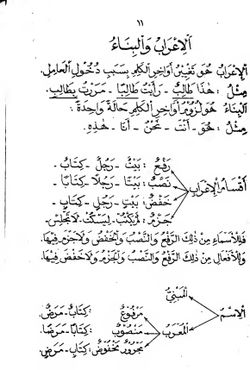 ١١
اَلْإِعْرَابُ وَالْبِنَاءُ
اَلْإِعْرَابُ هُوَ تَغْيِيْرُ أَوَاخِرِ الْكَلِمِ بِسَبَبِ دُخُوْلِ الْعَامِلِ.
مِثْلُ: هٰذَا طَالِبٌ - رَأَيْتُ طَالِبًا - مَرَرْتُ بِطَالِبٍ.
اَلْبِنَاءُ هُوَ لُزُوْمُ أَوَاخِرِ الْكَلِمِ حَالَةً وَاحِدَةً:
مِثْلُ: هُوَ - أَنْتَ - نَحْنُ - أَنَا - هٰذِهِ.
رَفْعٌ: بَيْتٌ - رَجُلٌ - كِتَابٌ.
نَصْبٌ: بَيْتًا - رَجُلًا - كِتَابًا.
أَقْسَامُ الْإِعْرَابِ
خَفْضٌ: بَيْتٍ - رَجُلٍ - كِتَابٍ.
جَزْمٌ: لِيَكْتُبْ - لِيَسْكُتْ - لَا تَجْلِسْ.
فَلِلْأَسْمَاءِ مِنْ ذٰلِكَ الرَّفْعُ وَالنَّصْبُ وَالْخَفْضُ وَلَا جَزْمَ فِيْهَا.
وَلِلْأَفْعَالِ مِنْ ذٰلِكَ الرَّفْعُ وَالنَّصْبُ وَالْجَزْمُ وَلَا خَفْضَ فِيْهَا.
اَلْمَبْنِيُّ
اَلْإِسْمُ
مَرْفُوْعٌ: كِتَابٌ - مَرَضٌ.
اَلْمُعْرَبُ
مَنْصُوْبٌ: كِتَابًا - مَرَضًا.
مَجْرُوْرٌ مَخْفُوْضٌ: كِتَابٍ - مَرَضٍ.